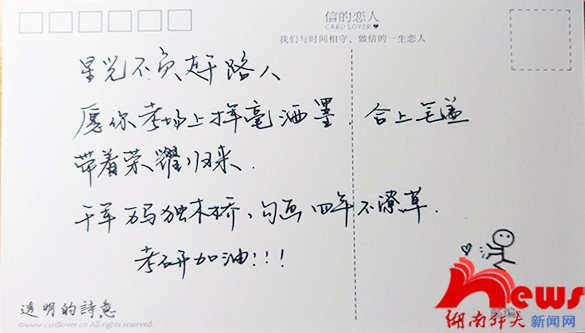 信的恋人
CARD LOVER
我们与时间相守，做信的一生恋人
星光不负赶路人
愿你考场上挥毫洒墨，合上笔盖
带着荣耀归来.
千军万马独木桥，勾画四年不潦草.
考研加油!!!
透明的詩意
©www.cardlover.cn All rights reserved.
News
湖南师大新闻网